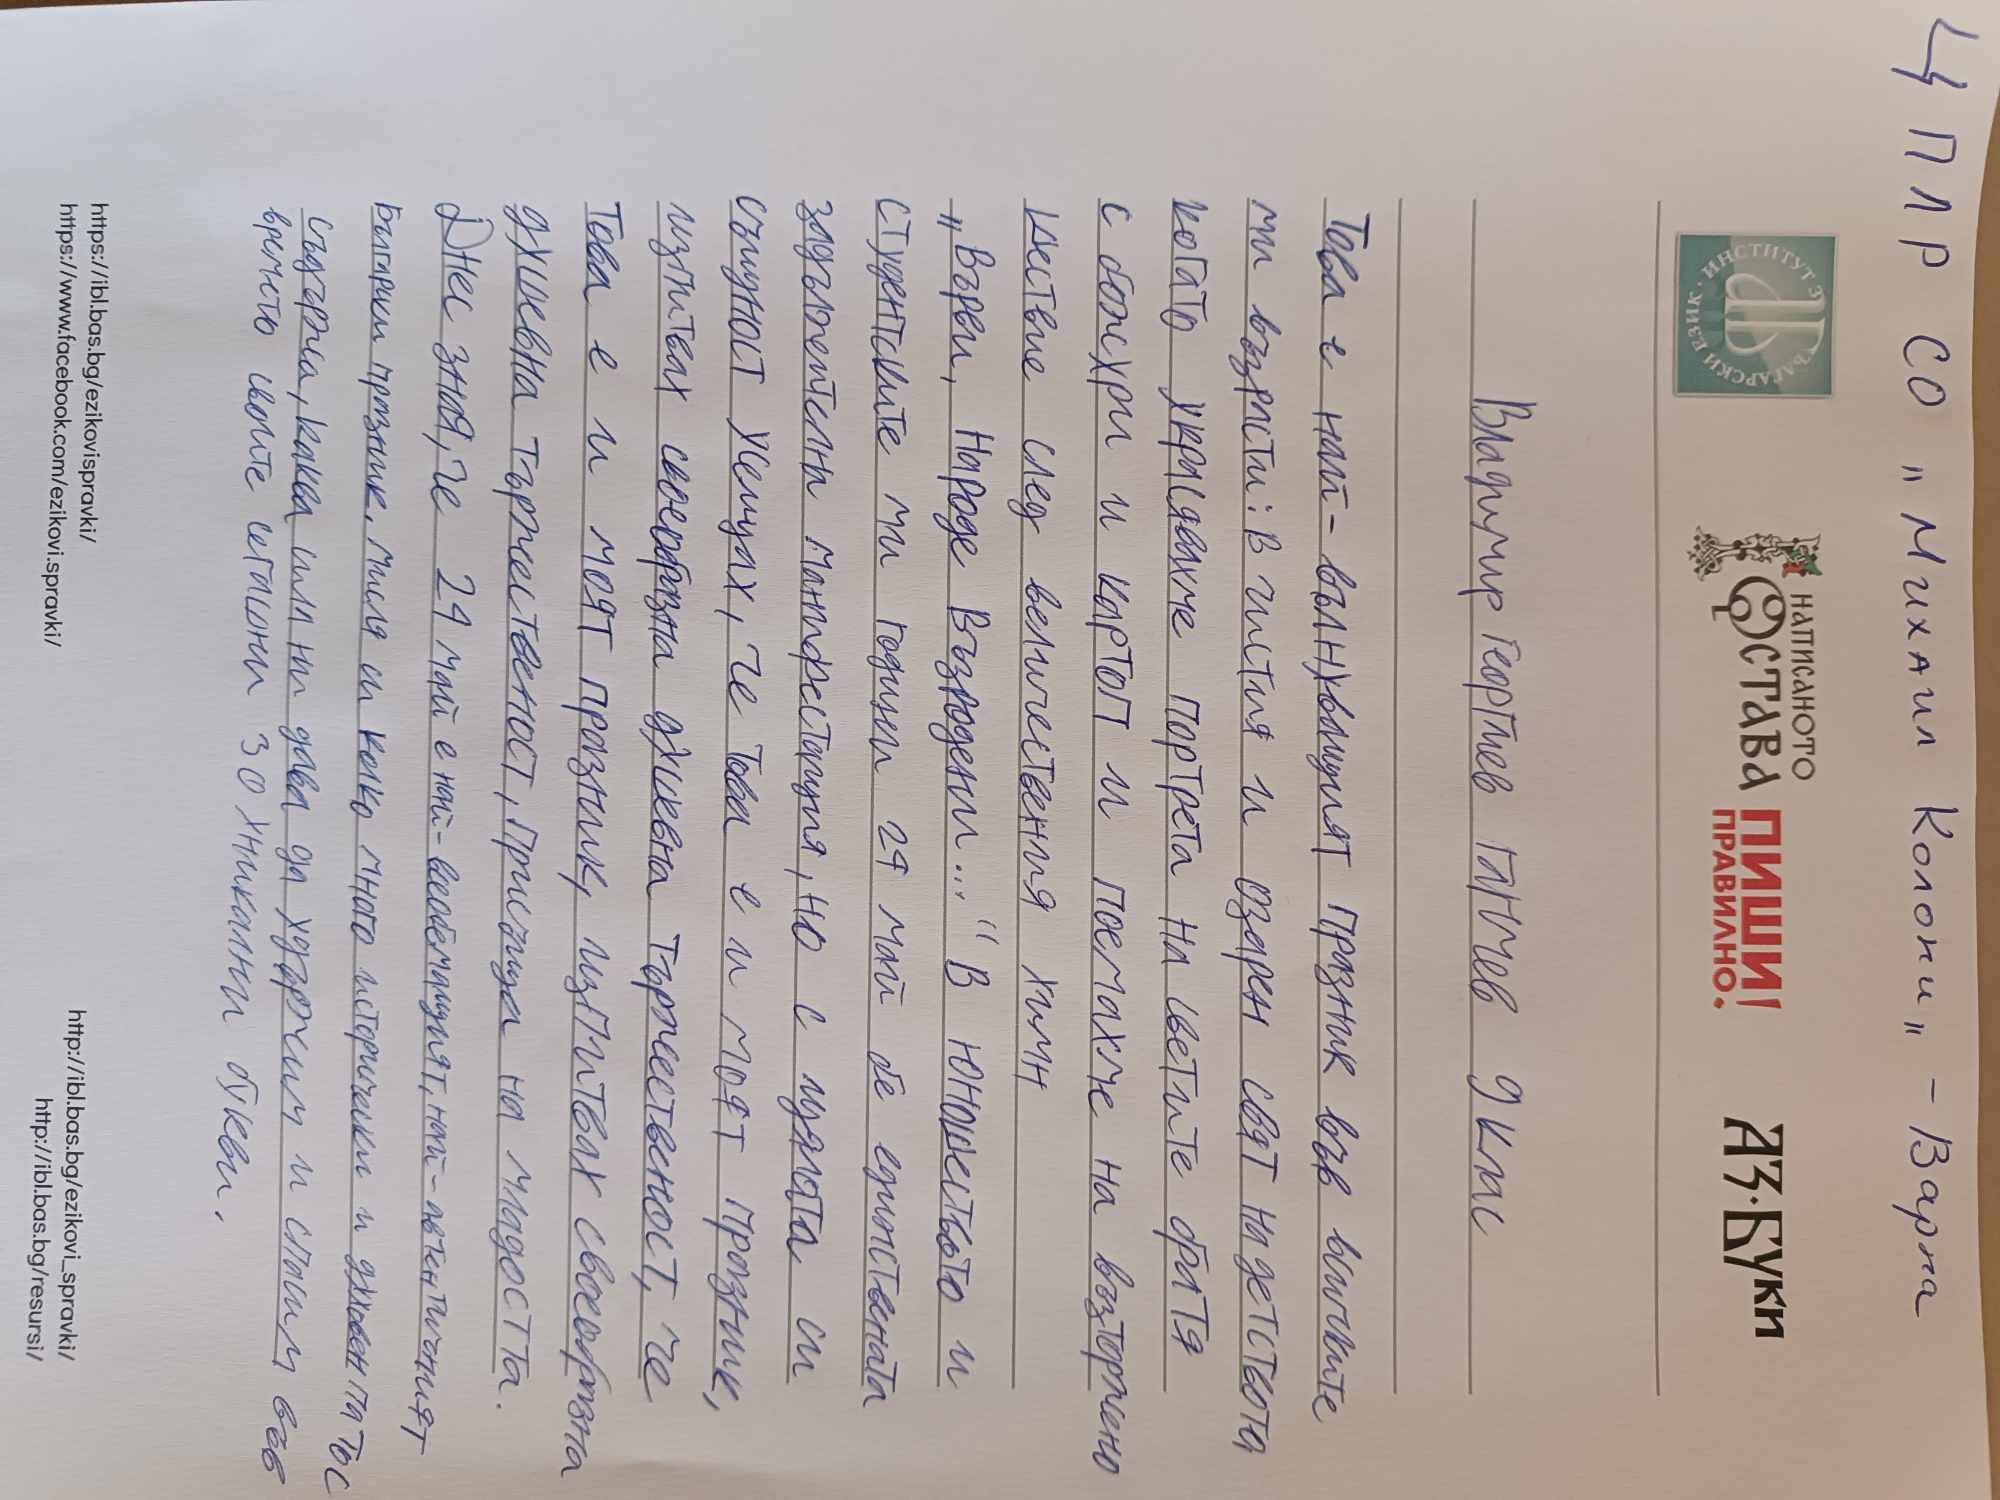 ЦПЛР СО „Михаил Колони" – Варна
ИНСТИТУТ ЗА БЪЛГАРСКИ ЕЗИК
НАПИСАНОТО
ОСТАВА
ПИШИ
ПРАВИЛНО!
АЗ·БУКИ
Владимир Георгиев Ганчев 9 клас
Това е най-вълнуващият празник във всичките
ми възрасти: В чистия и озарен свят на детството,
когато украсявахме портрета на Светите братя
с божури и картоп и поемахме на възторжено
шествие след величествения химн
„Върви, Народе Възродени..." В юношеството и
студентските ми години 24 май бе единствената
задължителна манифестация, но с цялата си
същност усещах, че това е и моят празник,
изпитвах своеобразна душевна тържественост, че
Това е и моят празник, изпитвах своеобразна
душевна тържественост, присъща на младостта.
Днес зная, че 24 май е най-всеобемащият, най-автентичният
Български празник. Мисля си колко много исторически и духовен патос
съдържа, каква сила ни дава да удържим и спасим във
времето своите сегашни 30 уникални букви.
https://ibl.bas.bg/ezikovispravki/
https://www.facebook.com/ezikovi.spravki/
http://ibl.bas.bg/ezikovi_spravki/
http://ibl.bas.bg/resursi/